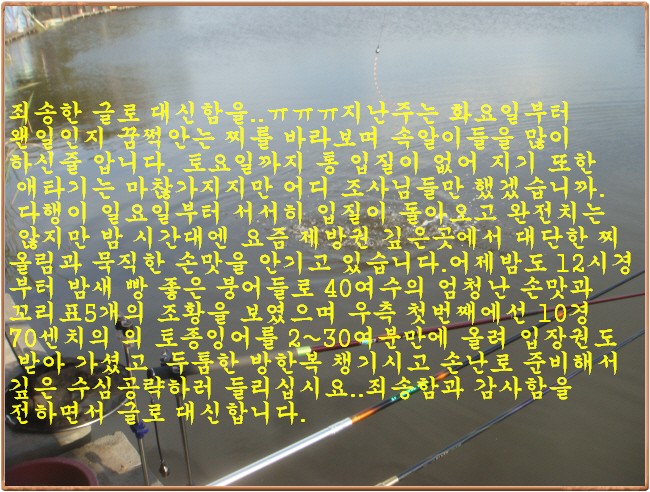 죄송한 글로 대신함을..ㅠㅠㅠ지난주는 화요일부터
왠일인지 꿈쩍안는 찌를 바라보며 속알이들을 많이
하신줄 압니다. 토요일까지 통 입질이 없어 지기 또한
애타기는 마찮가지지만 어디 조사님들만 했겠습니까.
다행이 일요일부터 서서히 입질이 돌아오고 완전치는
않지만 밤 시간대엔 요즘 제방권 깊은곳에서 대단한 찌
올림과 묵직한 손맛을 안기고 있습니다.어제밤도 12시경
부터 밤새 빵 좋은 붕어들로 40여수의 엄청난 손맛과
꼬리표5개의 조황을 보였으며 우측 첫번째에선 10경
70센치의 의 토종잉어를 2~30여분만에 올려 입장권도
받아 가셨고 두툼한 방한복 챙기시고 손난로 준비해서
깊은 수심공략하러 들리십시요..죄송함과 감사함을
전하면서 글로 대신합니다.